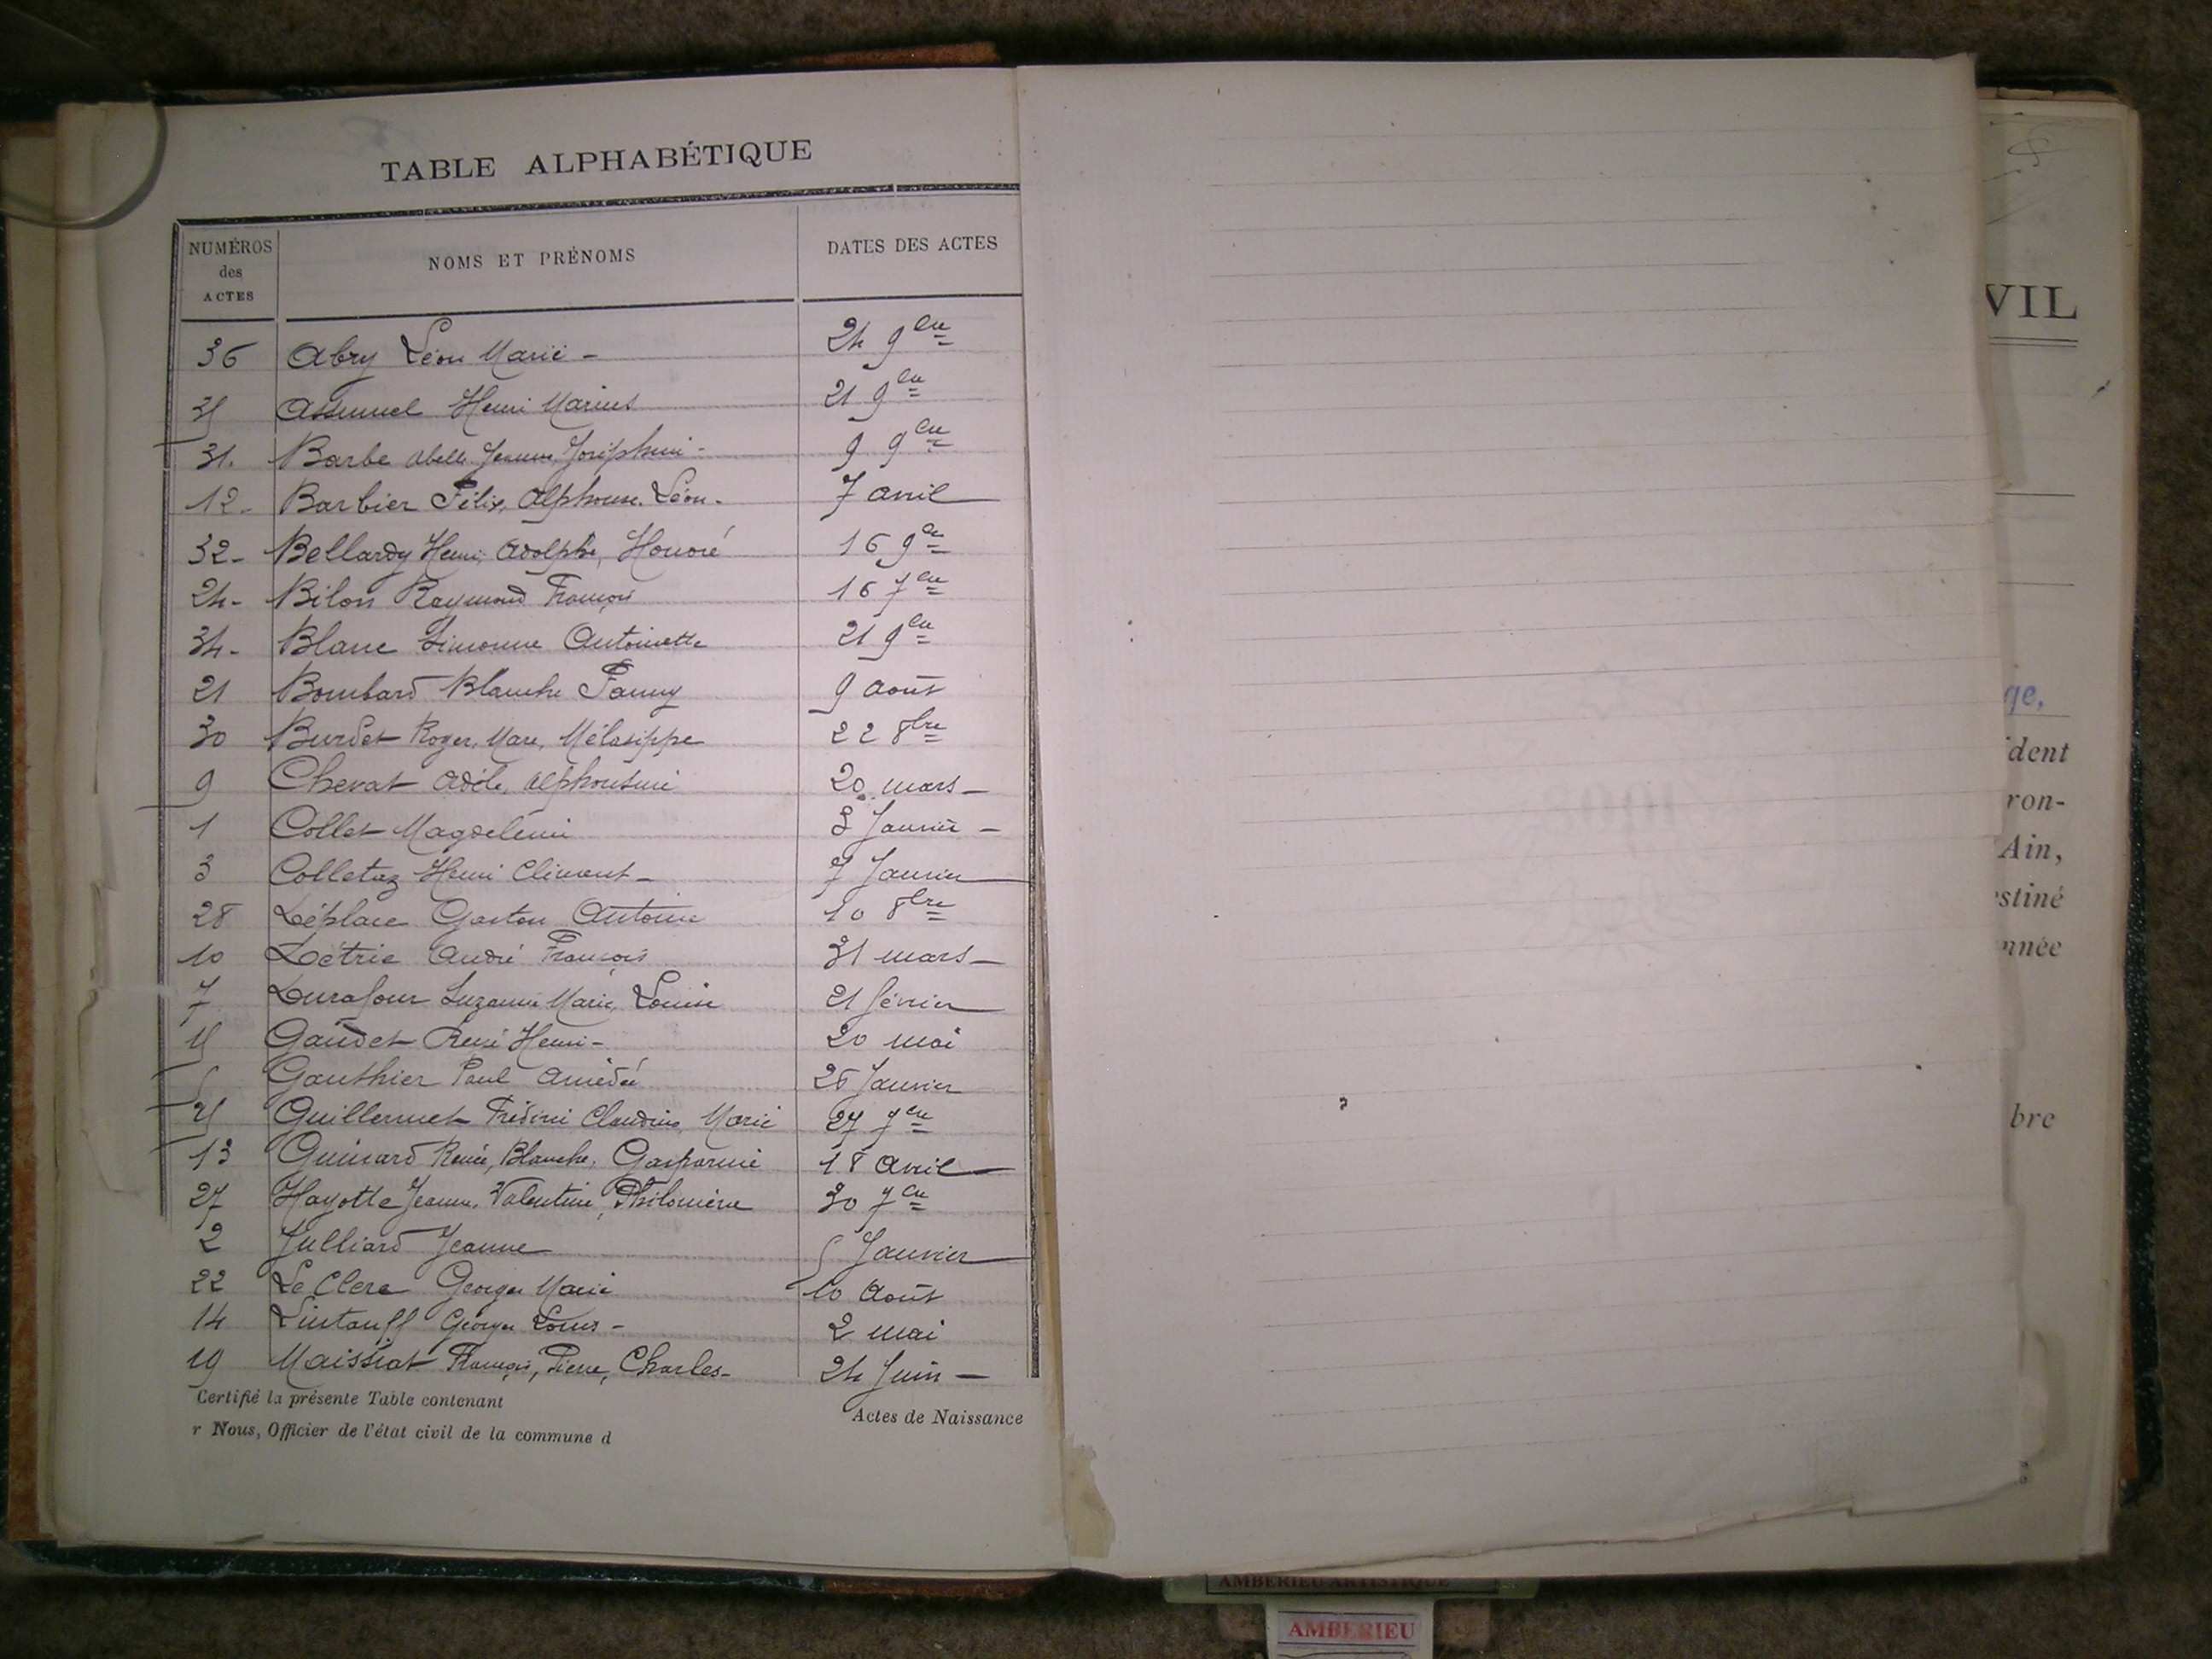 TABLE ALPHABÉTIQUE
NUMÉROS des ACTES NOMS ET PRÉNOMS DATES DES ACTES
36 Abry Léon Marie - 24 9bre
35 Assumel Henri Marius 21 9bre
31. Barbe Abelle Jeanne, Joséphine - 9 9bre
12 - Barbier Félix, Alphonse. Léon. 7 avril
32 - Bellardy Henri, Adolphe, Honoré 16 9bre
24 - Bilon Raymond François 16 7bre
34 - Blanc Simonne Antoinette 21 9bre
21 Bombard Blanche Fanny 9 août
30 Burdet Roger, Marc, Mélasippe 22 8bre
9 Chevat Adèle, Alphonsine 20 mars -
1 Collet Magdeleine 3 Janvier -
3 Colletaz Henri Climent - 7 Janvier
28 Déplace Gaston Antoine 10 8bre
10 Détrie André François 31 mars -
7 Durafour Suzanne Marie, Louise 21 février
15 Gaudet René Henri - 20 mai
5 Gauthier Paul Amédée 26 Janvier
25 Guillermet Frédéric Claudius, Marie 27 7bre
13 Guinard Renée, Blanche, Gasparine 18 avril
27 Hayotte Jeanne, Valentine, Philomène 30 7bre
2 Julliard Jeanne 5 Janvier
22 Le Clerc Georges Marie 10 août
14 Lintauff Georges Louis - 2 mai
19 Maissiat François, Pierre, Charles - 24 Juin -
Certifié la présente Table contenant Actes de Naissance
r Nous, Officier de l'état civil de la commune d
VIL
ge,
dent
ron-
Ain,
stiné
nnée
bre
AMBERIEU ARTISTIQUE
AMBERIEU